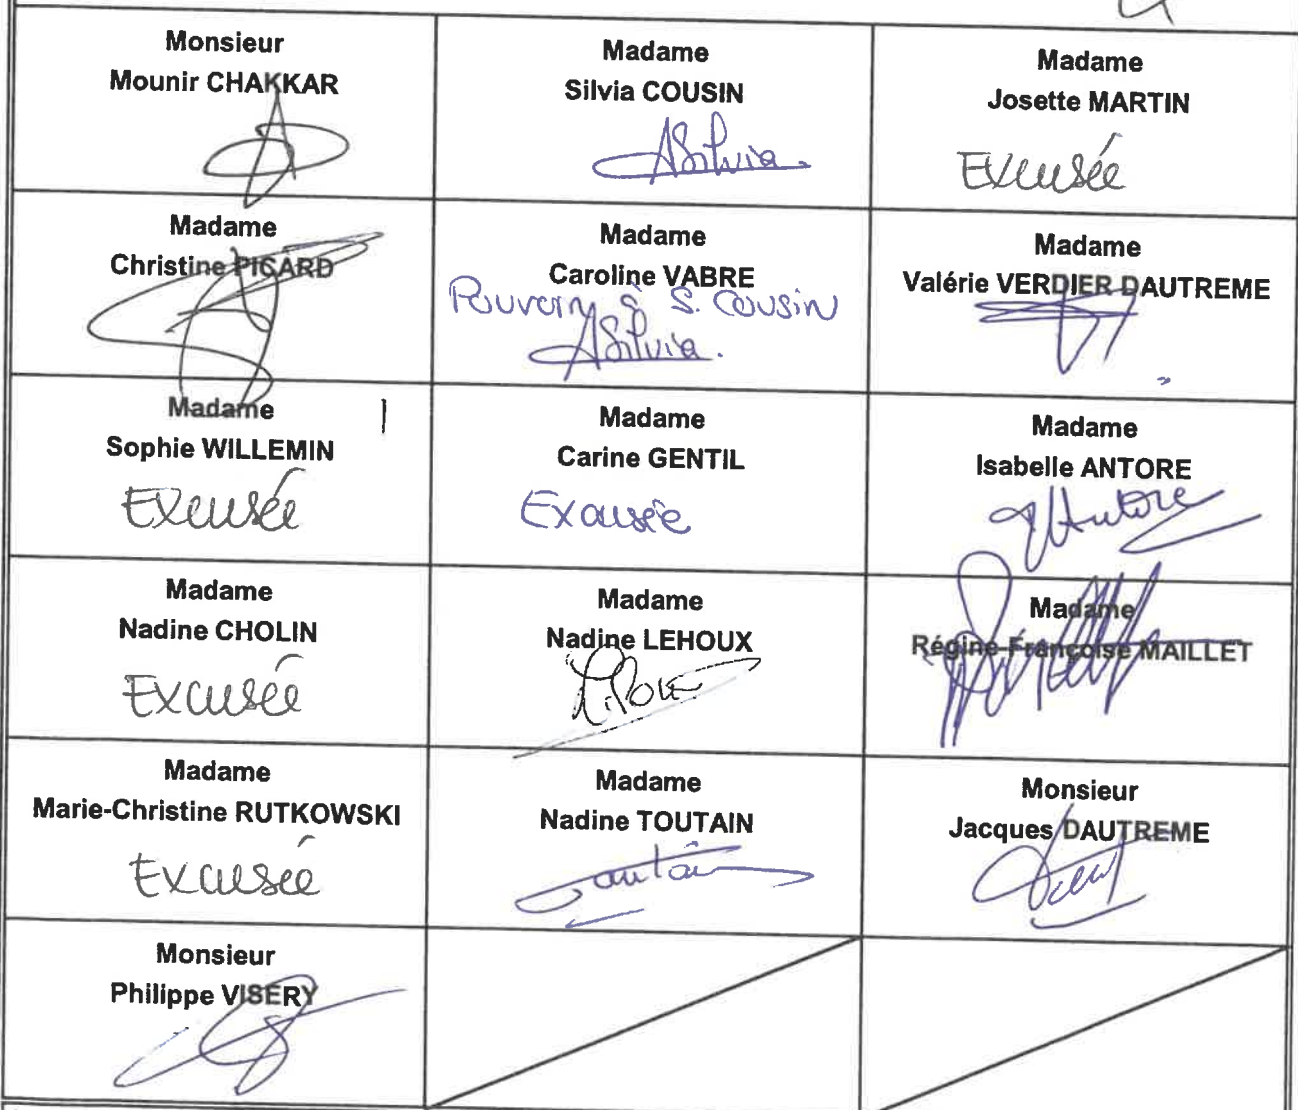 Monsieur
Mounir CHAKKAR
Madame
Silvia COUSIN
ASilvia
Madame
Josette MARTIN
Excusée
Madame
Christine PICARD
Madame
Caroline VABRE
Pouvoir à S. Cousin
ASilvia.
Madame
Valérie VERDIER DAUTREME
Madame
Sophie WILLEMIN
Excusée
Madame
Carine GENTIL
Excusée
Madame
Isabelle ANTORE
Antore
Madame
Nadine CHOLIN
Excusée
Madame
Nadine LEHOUX
Madame
Régine-Françoise MAILLET
Madame
Marie-Christine RUTKOWSKI
Excusée
Madame
Nadine TOUTAIN
Toutain
Monsieur
Jacques DAUTREME
Monsieur
Philippe VISERY